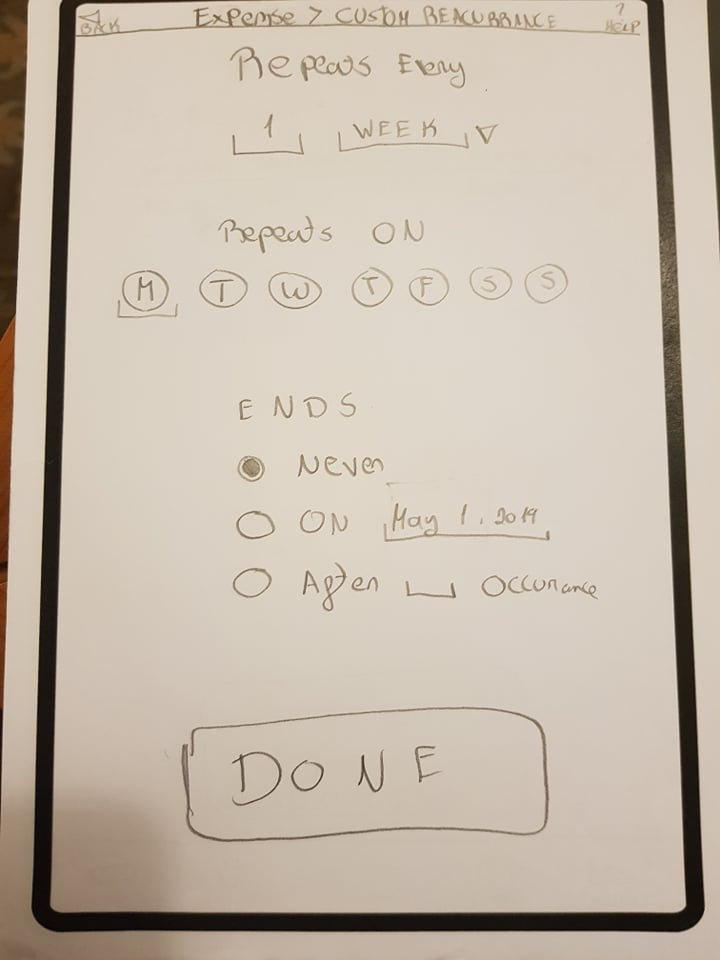 BACK Expense > CUSTOM REACURRANCE ? HELP
Repeats Every
1 WEEK
Repeats ON
M T W T F S S
ENDS
Never
ON May 1, 2019
After Occurance
DONE